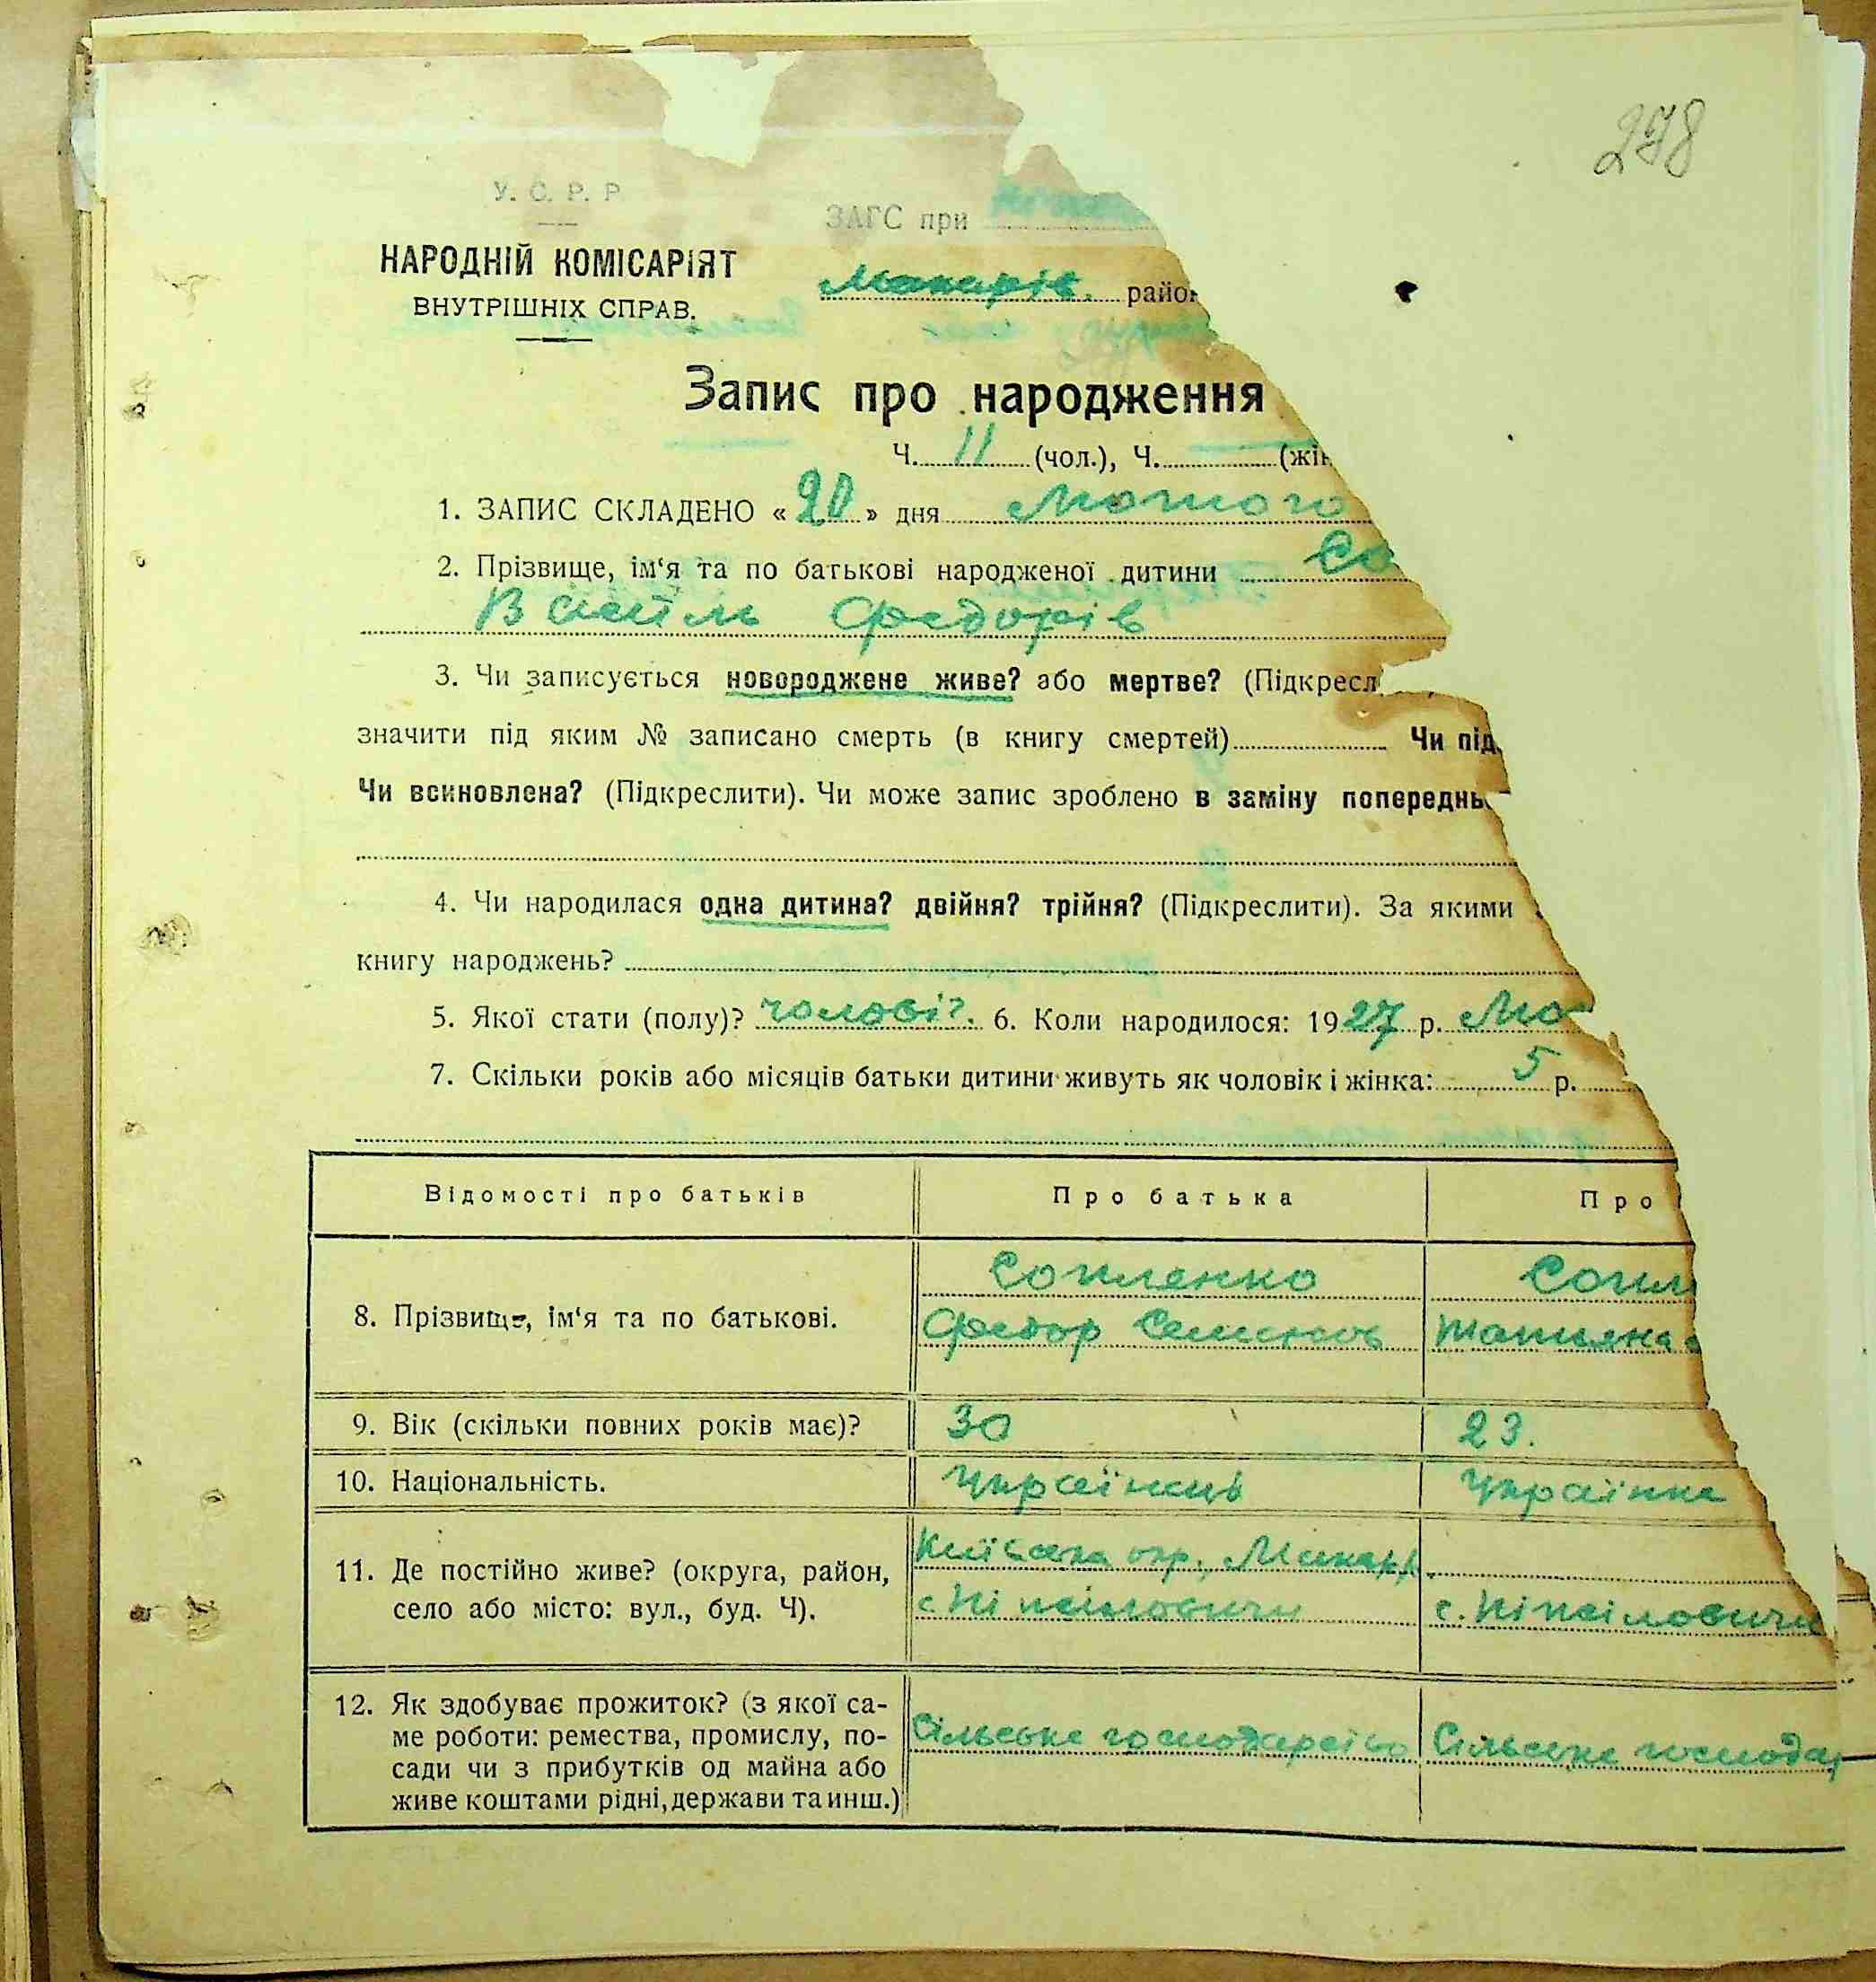 278
У. С. Р. Р.
ЗАГС при
НАРОДНІЙ КОМІСАРІЯТ
Макарів. район
ВНУТРІШНІХ СПРАВ.
Запис про народження
Ч. 11 (чол.), Ч. (жін
1. ЗАПИС СКЛАДЕНО « 20 » дня Лютого
2. Прізвище, ім‘я та по батькові народженої дитини Со
Василь Федорів
3. Чи записується новороджене живе? або мертве? (Підкресл
значити під яким № записано смерть (в книгу смертей) Чи під
Чи всиновлена? (Підкреслити). Чи може запис зроблено в заміну попереднь
4. Чи народилася одна дитина? двійня? трійня? (Підкреслити). За якими
книгу народжень?
5. Якої стати (полу)? чолові?. 6. Коли народилося: 1927 р. Лю
7. Скільки років або місяців батьки дитини живуть як чоловік і жінка: 5 р.
Відомості про батьків Про батька Про
Сопленко Сопл
8. Прізвище, ім‘я та по батькові.
Федор Семенов Татьяна
9. Вік (скільки повних років має)? 30 23.
10. Національність. Українець Українка
Київська окр., Макар.р.
11. Де постійно живе? (округа, район,
село або місто: вул., буд. Ч).
с. Ніжиловичи с. Ніжиловичи
12. Як здобуває прожиток? (з якої са-
ме роботи: ремества, промислу, по-
сади чи з прибутків од майна або
живе коштами рідні, держави та инш.)
Сільське господарство Сільське господар